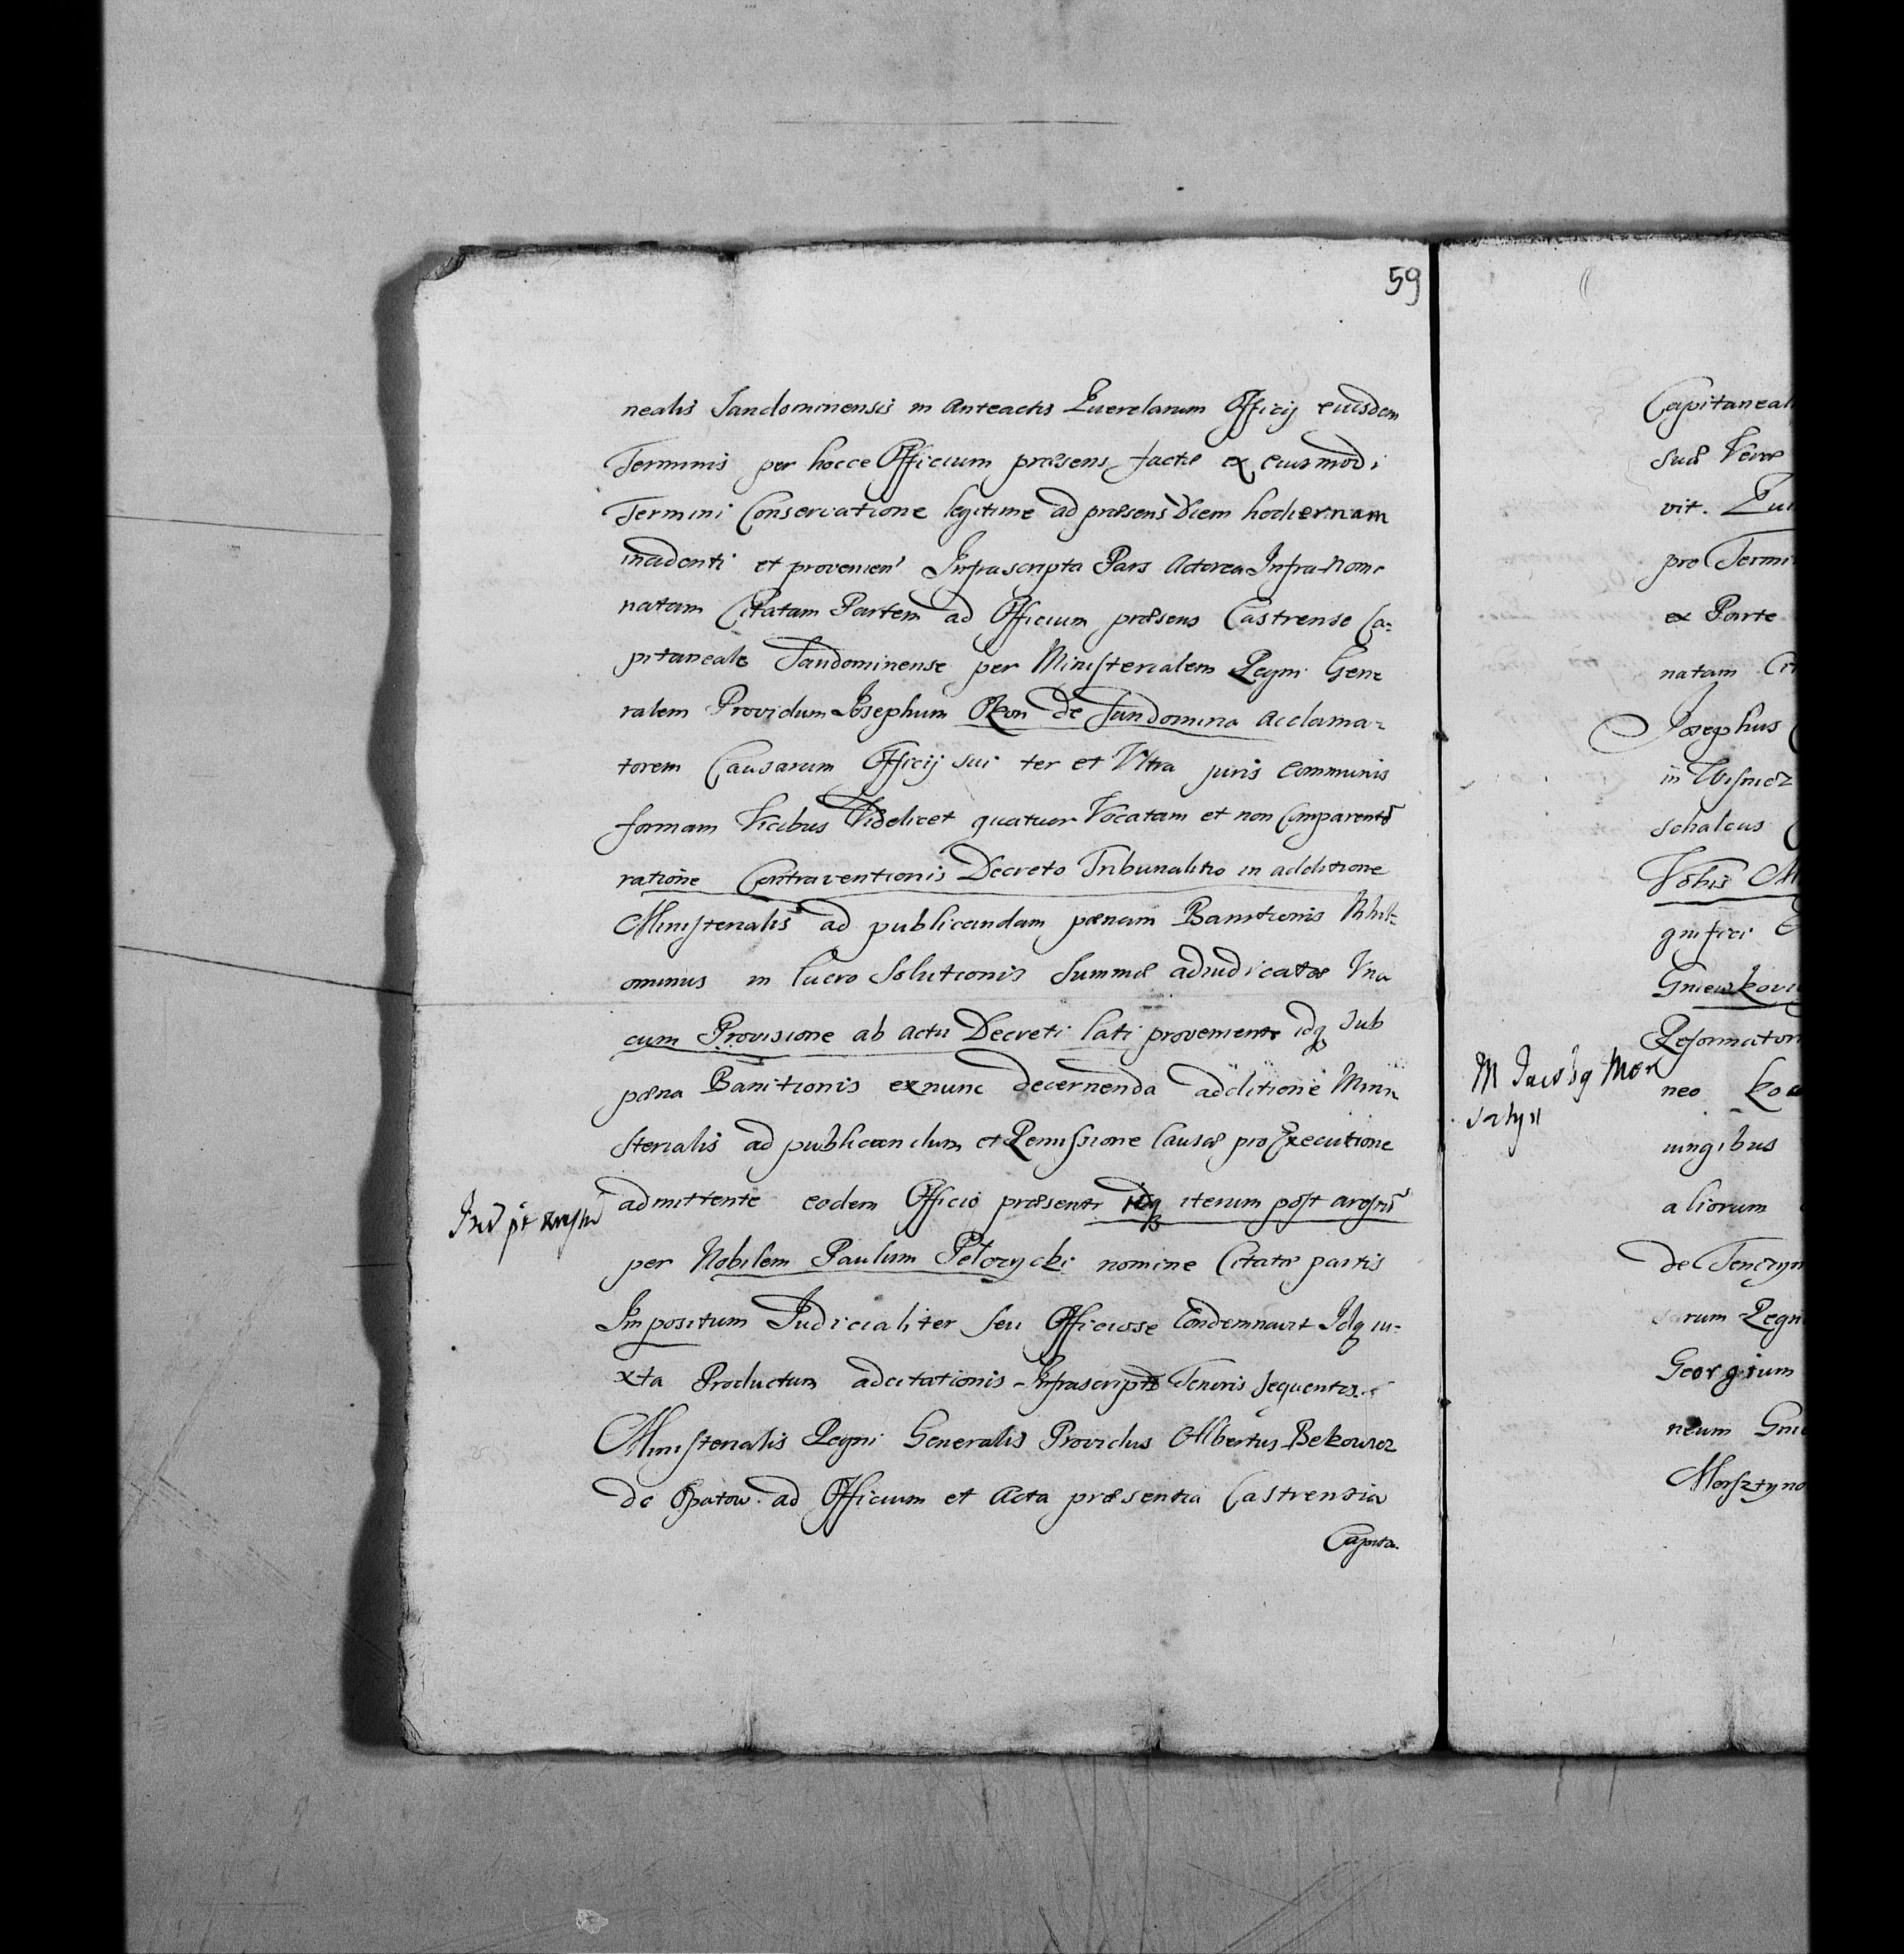 59
nealis Sandomiriensis in Anteactis Querelarum Officij eiusdem
Terminis per hocce Officium præsens factæ ex eiusmodi
Termini Conservatione legitime ad præsens Diem hodiernam
incidenti et provenien Infrascripta Pars Actorea Infra nomi
natam Citatam Partem ad Officium præsens Castrense Ca:
pitaneale Sandomiriense per Ministerialem Regni Gene
ralem Providum Josephum Okon de Sandomiria acclama:
torem Causarum Officij sui ter et Vltra juris communis
formam Vicibus Videlicet quatuor Vocatam et non Comparentē
ratione Contraventionis Decreto Tribunalitio in additione
Ministerialis ad publicandam pænam Banitionis Nihil:
ominus in lucro Solutionis Summæ adiudicatæ Vna
cum Provisione ab actu Decreti lati proveniente idq sub
pæna Banitionis exnunc decernenda additione Mini
sterialis ad publicandum et Remissione Causæ pro Executione
admittente eodem Officio præsenti idq iterum post arestū
per Nobilem Paulum Pełczycki nomine Citatæ partis
Impositum Judicialiter seu Officiose Condemnavit Idq iu:
xta Productum adcitationis Infrascriptæ Tenoris sequentis.
Ministerialis Regni Generalis Providus Albertus Bekowicz
de Opatow ad Officium et Acta præsentia Castrensia
Capita.
Capitaneal
suæ Veræ
vit.
pro Termi
ex Parte
natam
Josephus
in Wisnicz
schalcus
Vobis M
gnifici
Gniewkovi
Reformator
M Mor
neo
iungibus
aliorum
de Tenczyn
sarum Regn
Georgium
neum Gni
Morsztyno